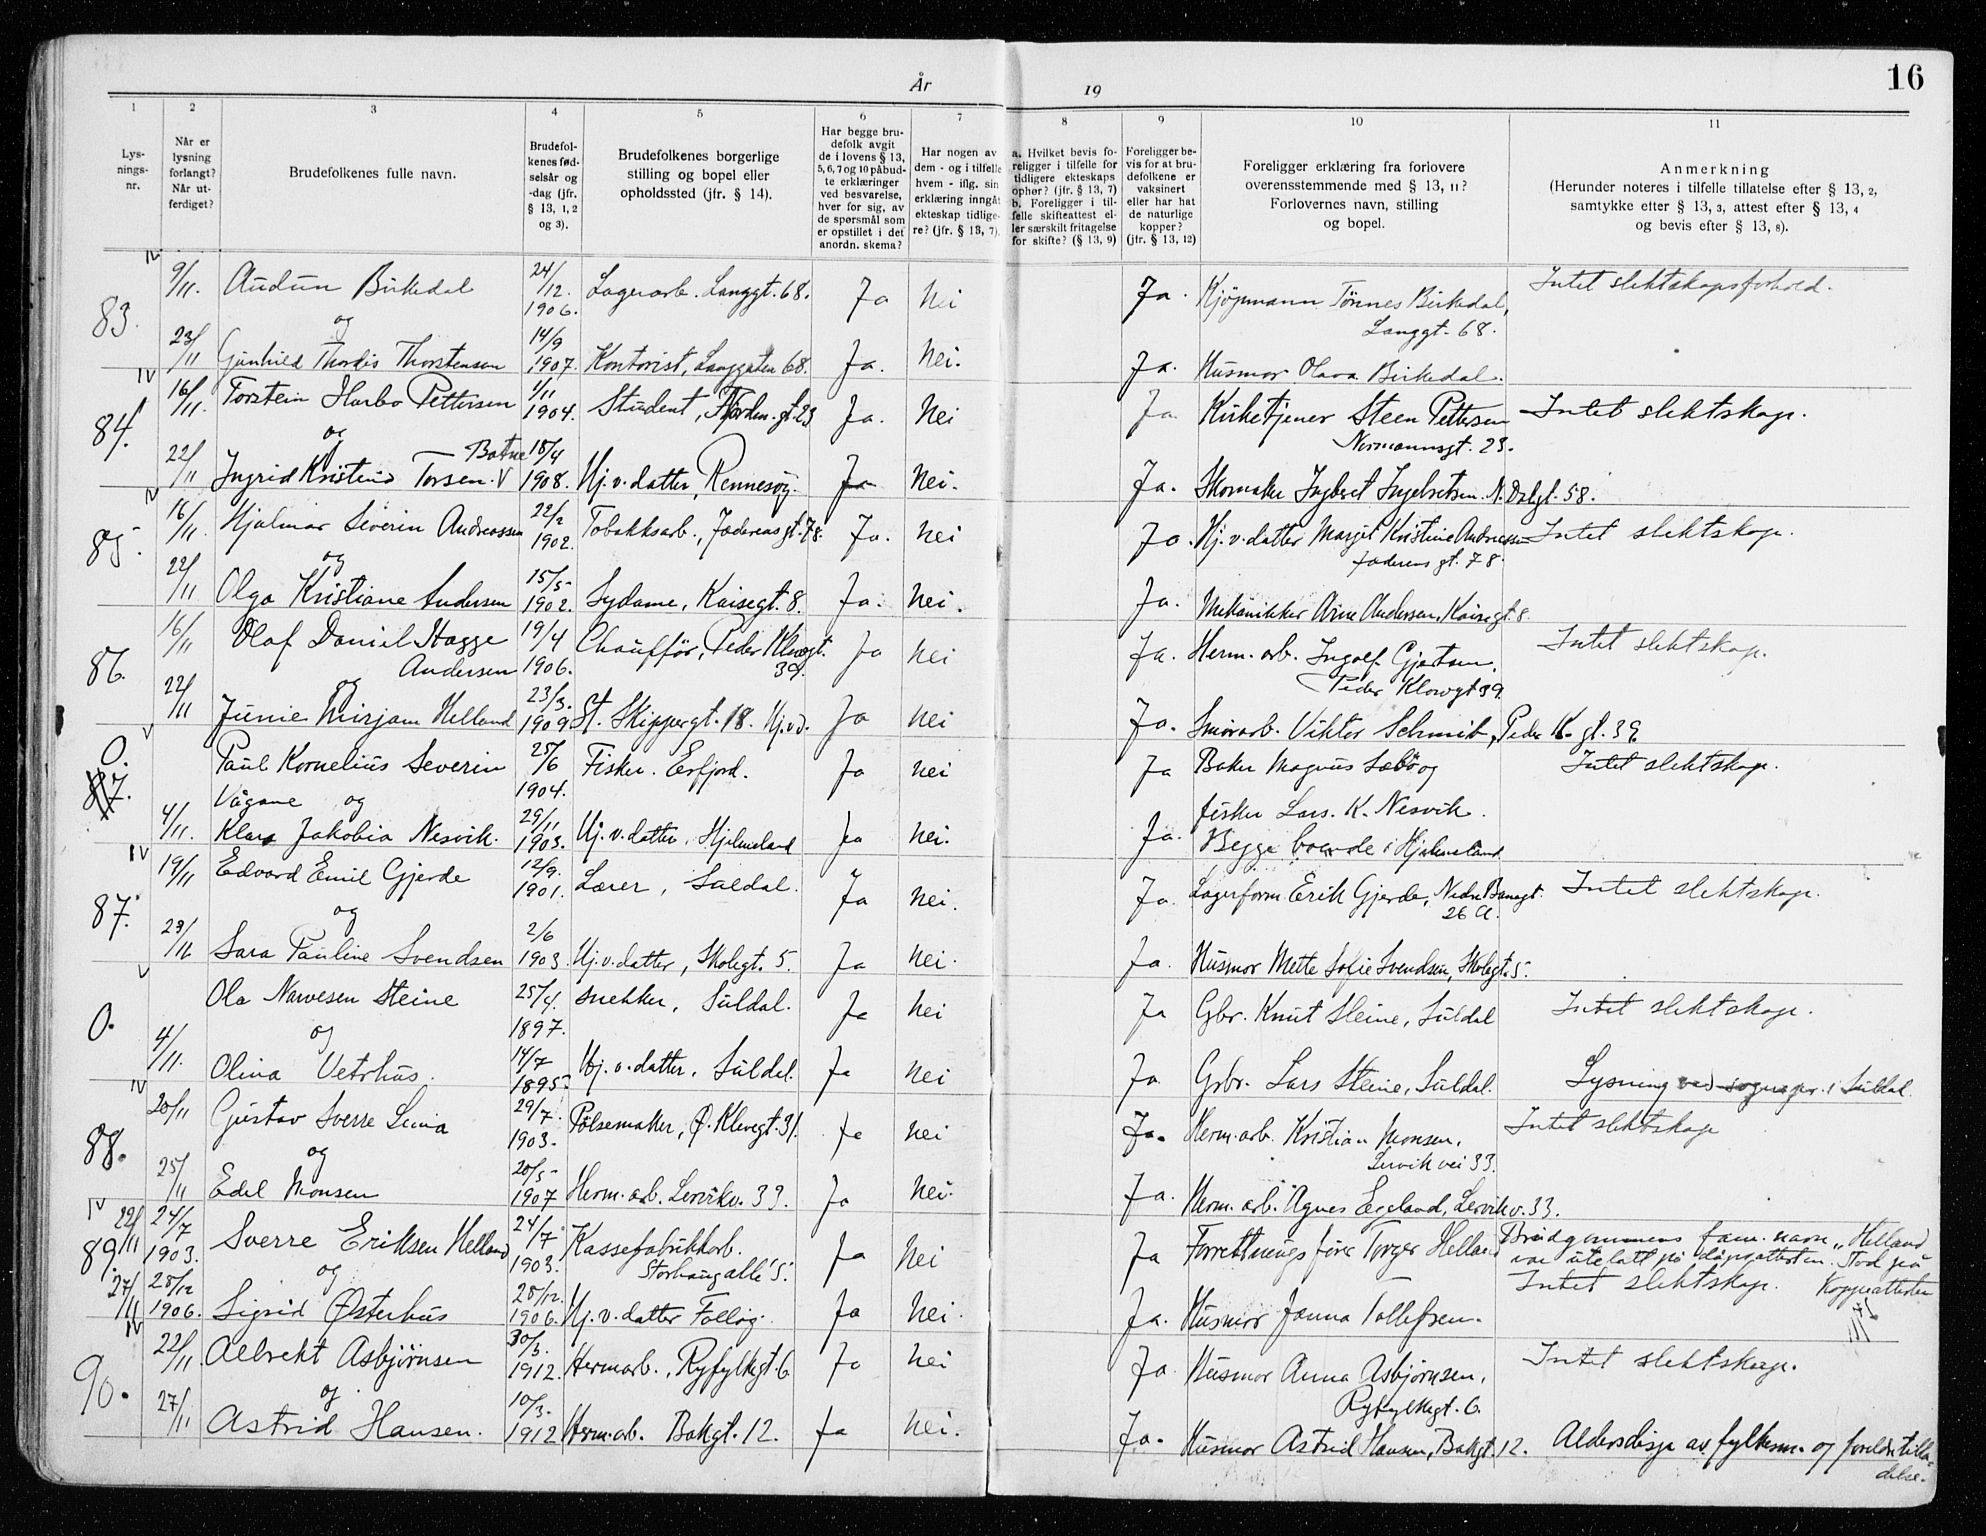 År 19
16
1 2 3 4 5 6 7 8 9 10 11
Lys-
nings-
nr.
Når er
lysning
forlangt?
Når ut-
ferdiget?
Brudefolkenes fulle navn.
Brudefol-
kenes fød-
selsår og
-dag (jfr.
§ 13, 1, 2
og 3).
Brudefolkenes borgerlige
stilling og bopel eller
opholdssted (jfr. § 14).
Har begge bru-
defolk avgit
de i lovens § 13,
5, 6, 7 og 10 påbud-
te erklæringer
ved besvarelse,
hver for sig, av
de spørsmål som
er opstillet i det
anordn. skema?
Har nogen av
dem - og i tilfelle
hvem - iflg. sin
erklæring inngåt
ekteskap tidlige-
re? (jfr. § 13, 7).
a. Hvilket bevis fo-
religger i tilfelle for
tidligere ekteskaps
ophør? (jfr. § 13, 7)
b. Foreligger i til-
felle skifteattest el-
ler særskilt fritagelse
for skifte? (§ 13, 9)
Foreligger be-
vis for at bru-
defolkene er
vaksinert
eller har hat
de naturlige
kopper?
(jfr. § 13, 12)
Foreligger erklæring fra forlovere
overensstemmende med § 13, 11?
Forlovernes navn, stilling
og bopel.
Anmerkning
(Herunder noteres i tilfelle tillatelse efter § 13, 2,
samtykke efter § 13, 3, attest efter § 13, 4
og bevis efter § 13, 8).
83. 9/11. Audun Birkedal 24/12. 1906. Lagerarb. Langgt. 68. Ja Nei Ja. Kjøpmann Tønnes Birkedal, Intet slektskapsforhold.
og Langgt. 68.
23/11 Gunhild Thordis Thorstensen 14/9 1907. Kontorist, Langgaten 68. Ja. Nei. Ja. Husmor Olava Birkedal.
84. 16/11. Torstein Harbo Pettersen 1/11 1904. Student, gt. 23 Ja. Nei Ja. Kirketjener Steen Pettersen Intet slektskap.
og Normannsgt. 23.
Botne
22/11 Ingrid Kristine Torsen. V 18/4 1908. Hj. v. datter, Rennesøy. Ja Nei. Ja. Skomaker Ingbret Ingebretsen. N. Dalgt. 58.
85. 16/11. Hjalmar Severin Andreassen 22/2 1902. Tobakksarb., Jæderens gt. 78. Ja. Nei Ja. Hj. v. datter Margit Kristine Andreassen Intet slektskap.
og Jæderens gt. 78.
22/11. Olga Kristiane Andersen 15/5 1902. Sydame, Kaisegt. 8. Ja. Nei. Ja. Mekanikker Arne Andersen, Kaisegt. 8.
86. 16/11 Olaf Daniel Hagge 19/4 1906. Chaufför, Peder Klowgt. Ja Nei Ja. Herm. arb. Ingolf Gjertsen, Intet slektskap.
Andersen 39.
og Peder Klowgt 39.
22/11 Junie Mirjam Helland 23/3. 1909 St. Skippergt. 18. Hj.v.d. Ja Nei Ja. Smørarb. Viktor Schmidt, Peder K. gt. 39.
0. 87. Paul Kornelius Severin 25/6 1904. Fisker. Erfjord. Ja Nei Ja Baker Magnus Sæbø og Intet slektskap.
Vågane og fisker Lars. K. Nesvik.
4/11. Klara Jakobia Nesvik. 29/11 1903. Hj. v. datter, Hjelmeland Ja Nei. Ja. Begge boende i Hjelmeland
87. 19/11 Edvard Emil Gjerde 12/9. 1901. Lærer, Suldal. Ja Nei. Ja. Lagerform. Erik Gjerde, Nedre Banegt. Intet slektskap.
og 26 a.
23/11 Sara Pauline Svendsen 2/6 1903 Hj. v. datter, Skolegt. 5. Ja Nei. Ja. Husmor Mette Sofie Svendsen, Skolegt. 5.
0. Ola Narvesen Steine 25/4. 1897. snekker, Suldal. Ja Nei Ja Gbr. Knut Steine, Suldal Intet slektskap.
og
4/11. Olina Vetrhus. 14/7 1895. Hj. v. datter, Suldal. Ja Nei Ja. Gbr. Lars Steine, Suldal. Lysning ved sognepr. i Suldal.
88. 20/11 Gustav Sverre Lima 29/7. 1903. Pølsemaker, Ø. Klevegt. 31. Ja Nei Ja. Herm. arb. Kristian Monsen, Intet slektskap
og Lervik vei 33.
25/11 Edel Monsen 20/5 1907 Herm. arb. Lervikv. 33. Ja Nei. Ja. Herm. arb. Agnes Egeland, Lervikv. 33.
89. 22/11 24/7 1903. Sverre Eriksen Helland 24/7 1903. Kassefabrikkarb. Ja Nei Ja Forretningsfører Torger Helland Brudgommens fam. navn „Helland
Storhaug allé 5. var utelatt på dåpsattesten. Stod på
og Intet slektskap. Koppeattesten
27/11 28/12 1906. Sigrid Østerhus 28/12. 1906. Hj. v. datter Ja Nei. Ja. Husmor Janna Tollefsen.
90. 22/11 Albrekt Asbjørnsen 30/3. 1912. Hermarb., Ryfylkegt. 6 Ja Nei Ja. Husmor Anna Asbjørnsen, Intet slektskap.
og Ryfylkegt. 6.
27/11 Astrid Hansen. 10/3. 1912 Herm. arb. Bakgt. 12. Ja Nei. Ja. Husmor Astrid Hansen, Bakgt. 12. Aldersdisp av fylkesm. og foreldretilla-
delse.